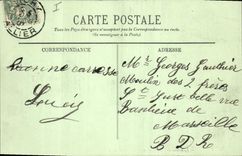 CARTE POSTALE
Tous les pays étrangers n'acceptent pas la Correspondance au recto
(Se renseigner à la Poste)
CORRESPONDANCE
ADRESSE
Bonne caresse
Louis
Mr Georges Gauthier
Moulin des 2 frères
St José
Banlieue de
Marseille
B D R